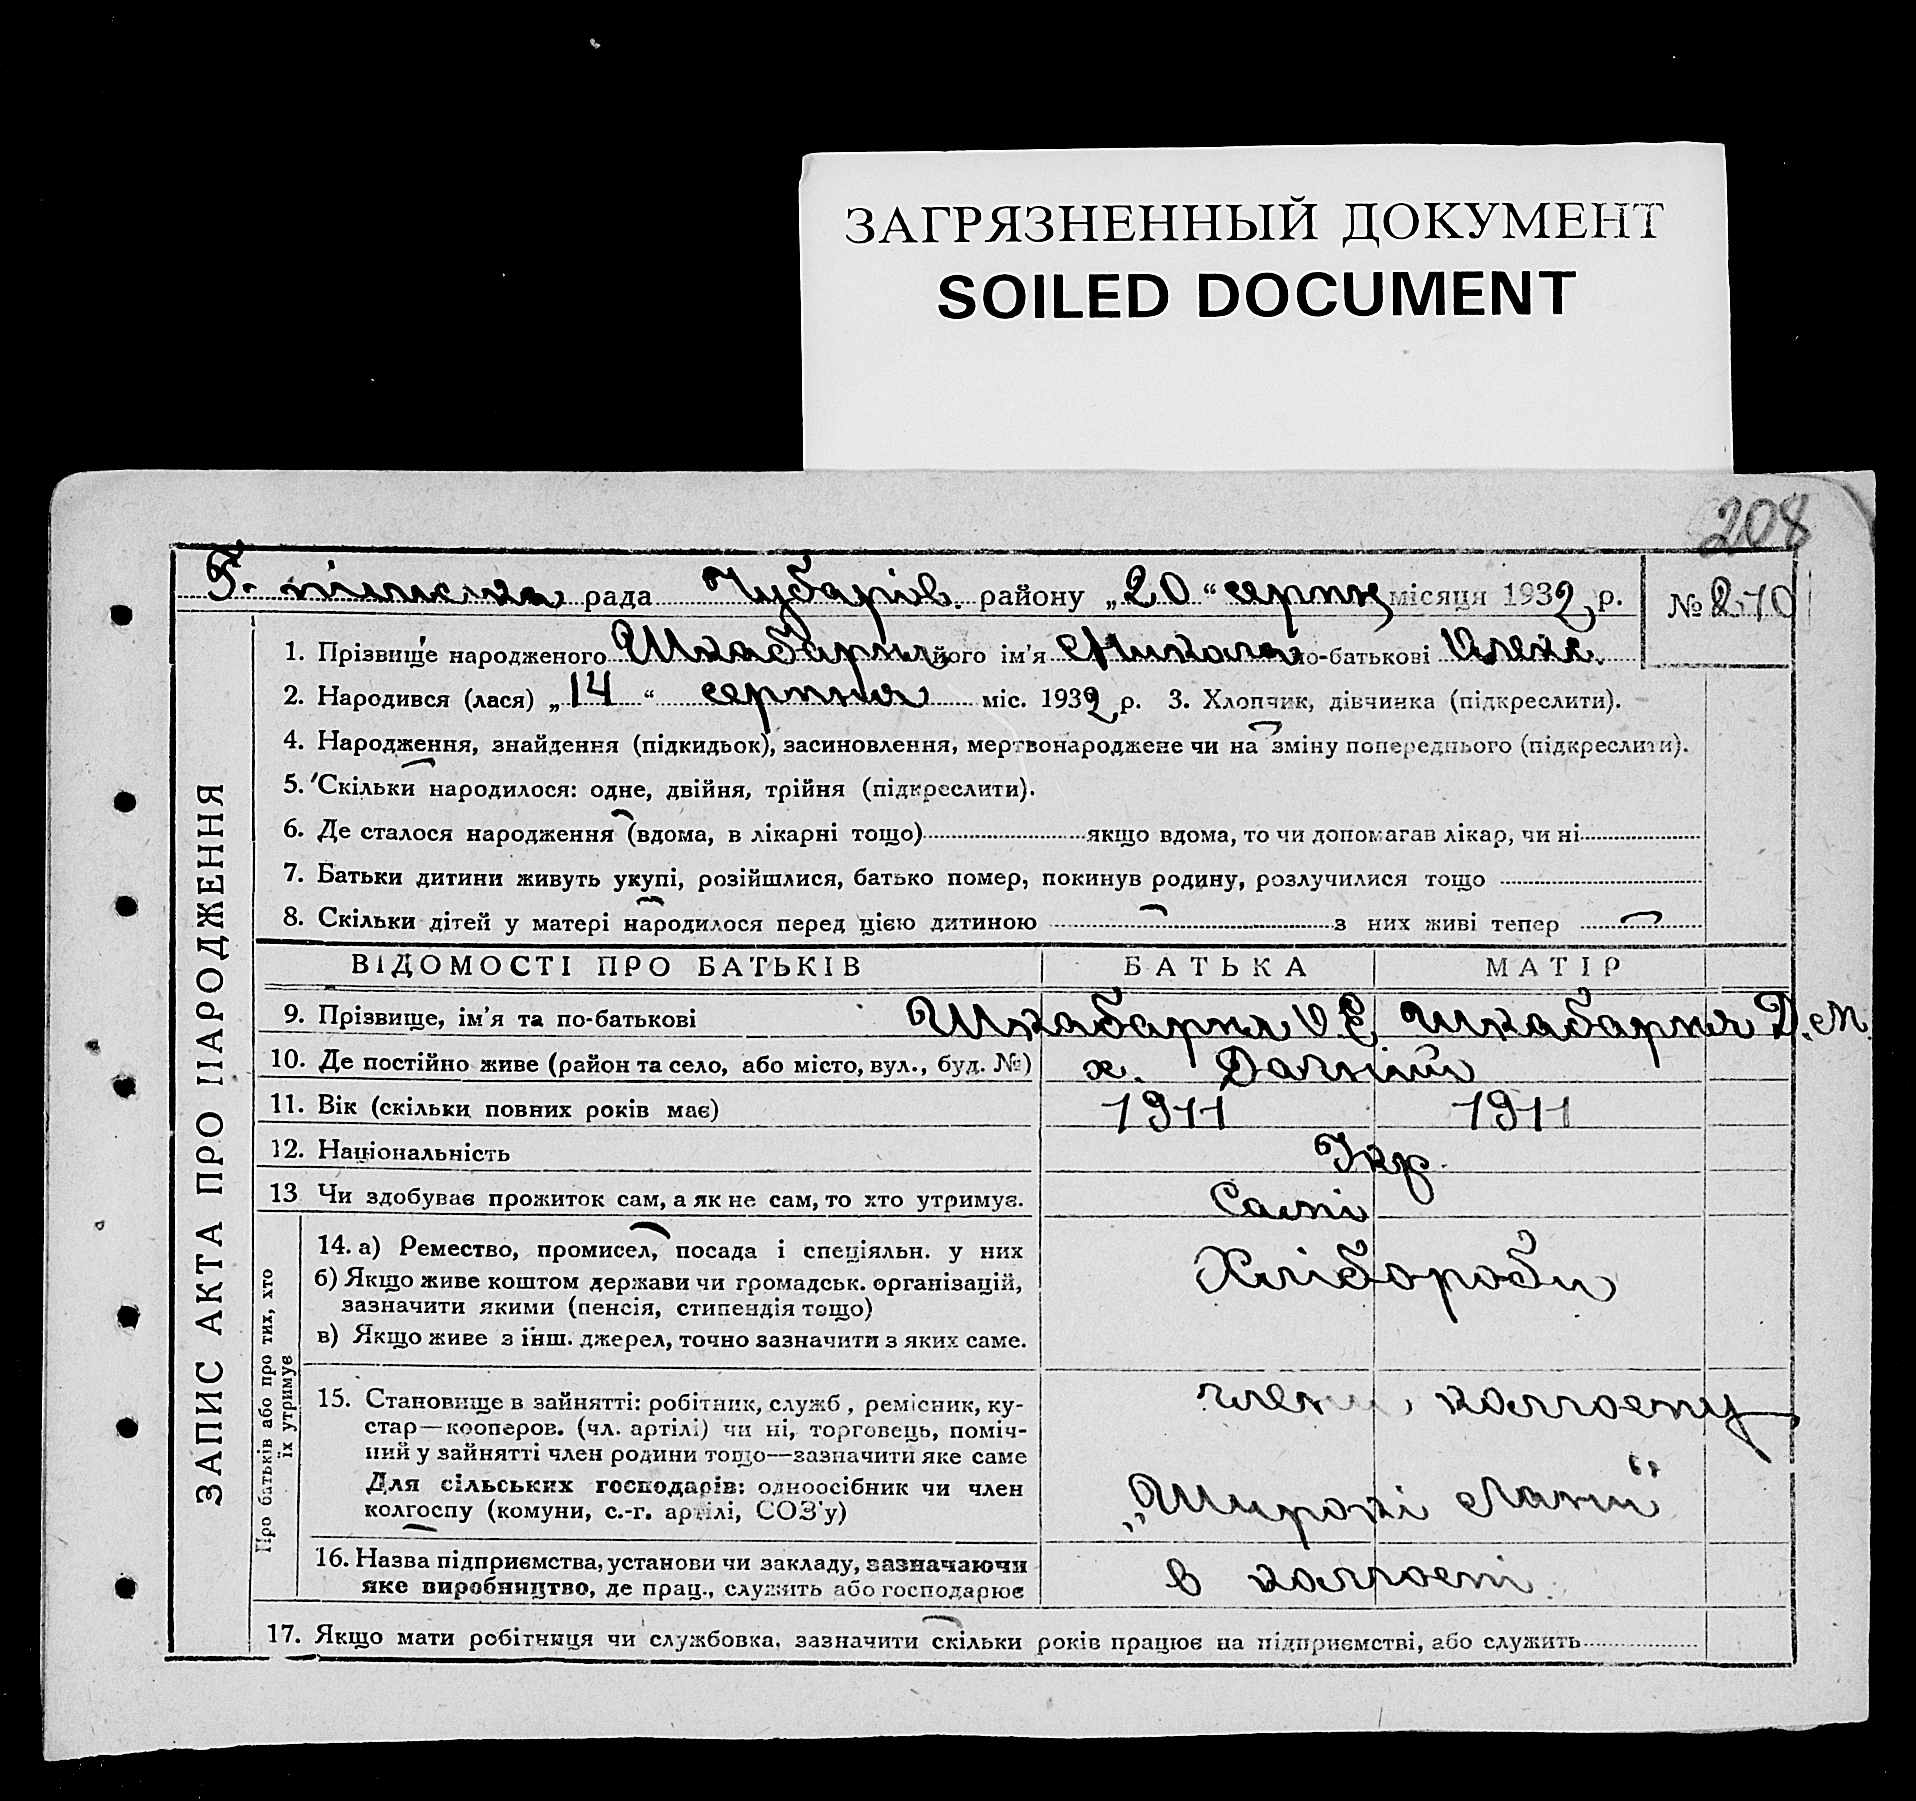 ЗАГРЯЗНЕННЫЙ ДОКУМЕНТ
SOILED DOCUMENT
208
рада Чубарів. району „20“ серпня місяця 1932 р. № 210
1. Прізвище народженого Шкабарня його ім'я Микола по-батькові Олекс.
2. Народився (лася) „14“ серпня міс. 1932 р. 3. Хлопчик, дівчинка (підкреслити).
4. Народження, знайдення (підкидьок), засиновлення, мертвонароджене чи на зміну попереднього (підкреслити).
5. Скільки народилося: одне, двійня, трійня (підкреслити).
6. Де сталося народження (вдома, в лікарні тощо) якщо вдома, то чи допомагав лікар, чи ні
7. Батьки дитини живуть укупі, розійшлися, батько помер, покинув родину, розлучилися тощо
8. Скільки дітей у матері народилося перед цією дитиною з них живі тепер
ЗАПИС АКТА ПРО НАРОДЖЕННЯ
ВІДОМОСТІ ПРО БАТЬКІВ БАТЬКА МАТІР
9. Прізвище, ім'я та по-батькові Шкабарня О. Є. Шкабарня Д. М.
10. Де постійно живе (район та село, або місто, вул., буд. №) х.
11. Вік (скільки повних років має) 1911 1911
12. Національність Укр.
13 Чи здобуває прожиток сам, а як не сам, то хто утримує. Самі
Про батьків або про тих, хто
їх утримує
14. а) Ремество, промисел, посада і спеціяльн. у них Хлібороби
б) Якщо живе коштом держави чи громадськ. організацій,
зазначити якими (пенсія, стипендія тощо)
в) Якщо живе з інш. джерел, точно зазначити з яких саме.
15. Становище в зайнятті: робітник, служб, ремісник, ку- члени колгоспу
стар—кооперов. (чл. артілі) чи ні, торговець, поміч-
ний у зайнятті член родини тощо—зазначити яке саме
Для сільських господарів: одноосібник чи член „Широкі Лани“
колгоспу (комуни, с.-г. артілі, СОЗ'у)
16. Назва підприємства, установи чи закладу, зазначаючи в колгоспі
яке виробництво, де прац., служить або господарює
17. Якщо мати робітниця чи службовка, зазначити скільки років працює на підприємстві, або служить